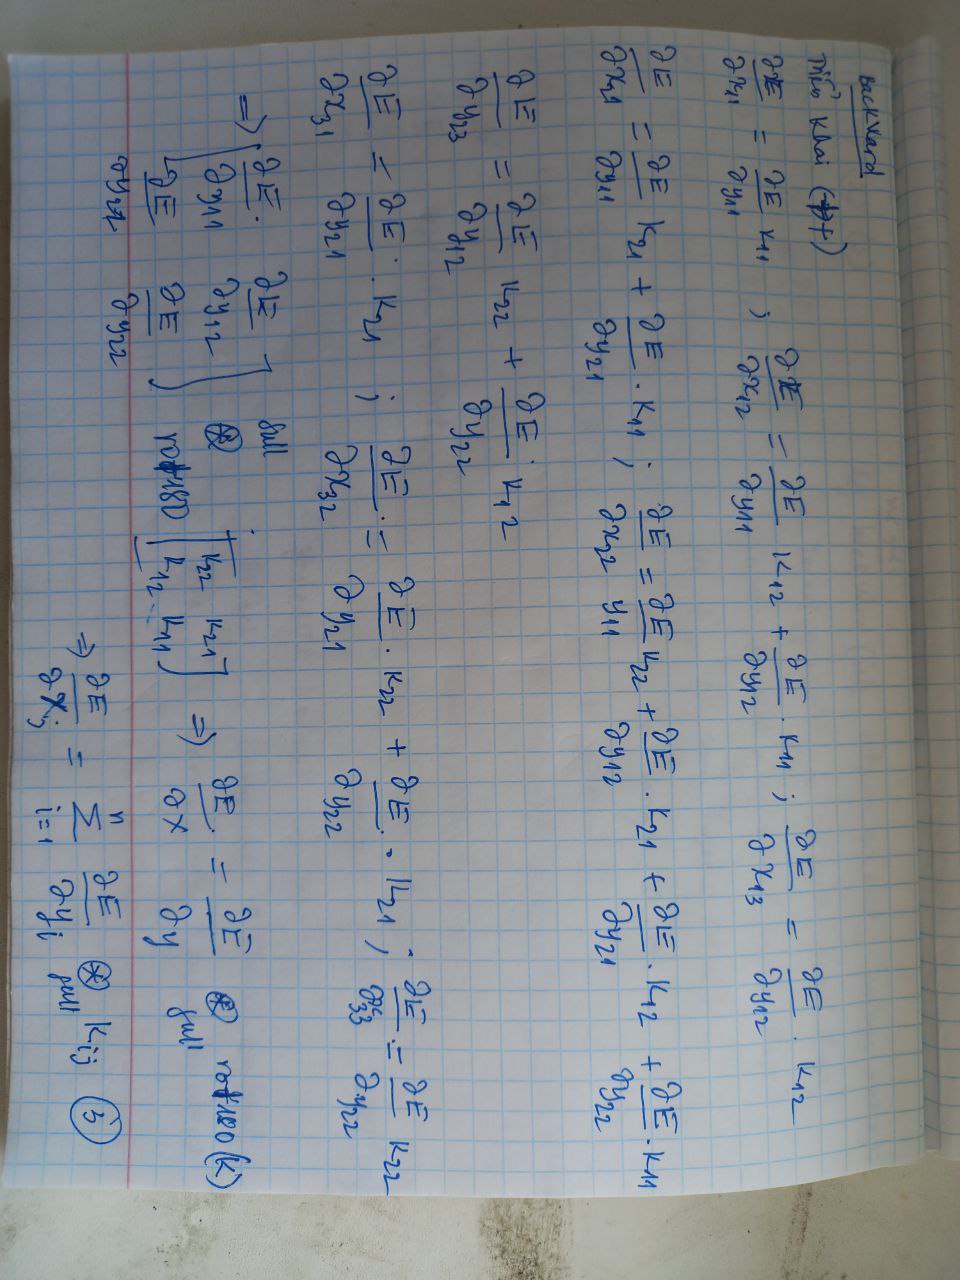 Backward
Triển khai (+)
∂E/∂x11 = ∂E/∂y11 K11 ; ∂E/∂x12 = ∂E/∂y11 K12 + ∂E/∂y12 . K11 ; ∂E/∂x13 = ∂E/∂y12 . K12
∂E/∂x21 = ∂E/∂y11 K21 + ∂E/∂y21 . K11 ; ∂E/∂x22 = ∂E/y11 K22 + ∂E/∂y12 . K21 + ∂E/∂y21 . K12 + ∂E/∂y22 . K11
∂E/∂y23 = ∂E/∂y12 K22 + ∂E/∂y22 K12
∂E/∂x31 = ∂E/∂y21 . K21 ; ∂E/∂x32 = ∂E/∂y21 . K22 + ∂E/∂y22 . K21 ; ∂E/∂x33 = ∂E/∂y22 K22
⇒ [∂E/∂y11 ∂E/∂y12 full
∂E/∂y21 ∂E/∂y22] ⊛ rot180 [K22 K21
K12 K11] ⇒ ∂E/∂X = ∂E/∂y ⊛ full rot180 (K)
⇒ ∂E/∂Xj = Σ i=1 n ∂E/∂yi ⊛ full Kij ③